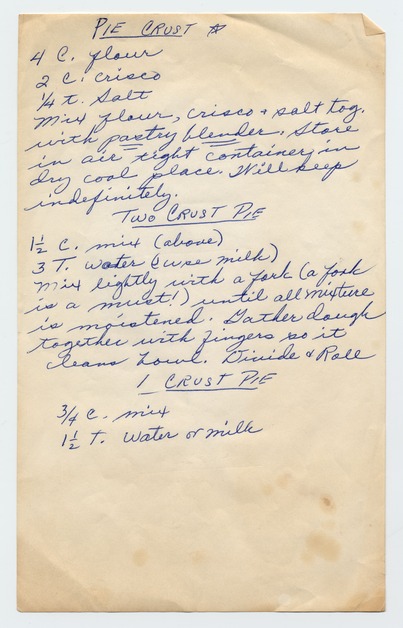 PIE CRUST ☆
4 C. flour
2 C. crisco
1/4 t. Salt
Mix flour, crisco + salt tog.
with pastry blender. Store
in air tight container in
dry cool place. Will keep
indefinitely.
TWO CRUST PIE
1 1/2 C. mix (above)
3 T. water (iuse milk)
Mix lightly with a fork (a fork
is a must!) until all mixture
is moistened. Gather dough
together with fingers so it
cleans bowl. Divide & Roll
1 CRUST PIE
3/4 C. mix
1 1/2 T. Water or milk